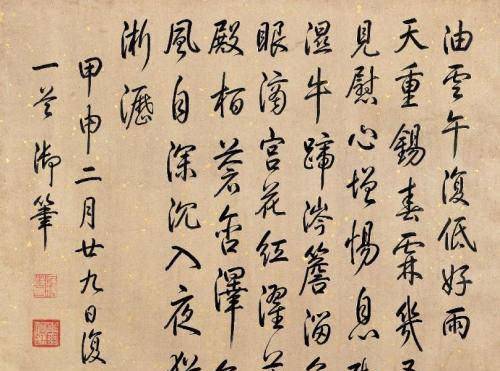 油雲午復低好雨
天重錫春霖幾
見慰心增惕息
濕牛蹄涔簷溜
眼滴宮花紅濯
殿柏蒼含澤
風自深沉入夜
淅瀝
甲申二月廿九日復
一首御筆